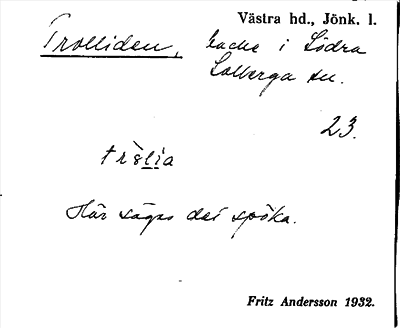 Västra hd., Jönk. l.
Trolliden, backe i Södra
Solberga sn.
23.
tròlia
Här säges det spöka.
Fritz Andersson 1932.